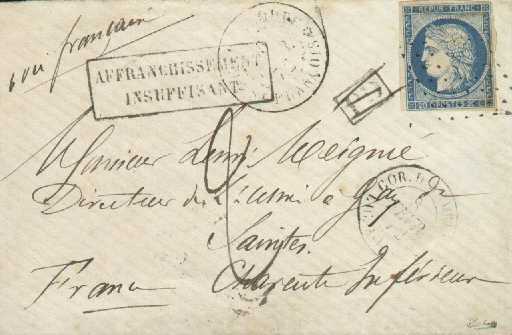 voie française
AFFRANCHISSEMENT
INSUFFISANT
REPUB. FRANC.
PD
Monsieur Henri Meignié
Directeur de l'Usine a Gaz
Saintes
France Charente Inférieure
COR. D